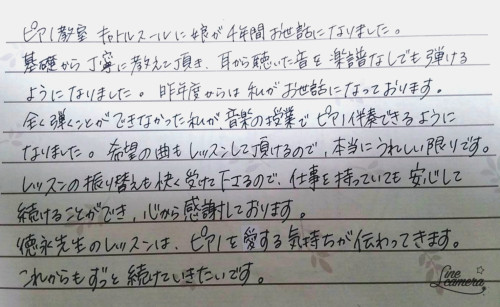 ピアノ教室 ホットルスールに娘が4年間お世話になりました。
基礎から丁寧に教えて頂き、耳から聴いた音を楽譜なしでも弾ける
ようになりました。昨年度からは私がお世話になっております。
全く弾くことができなかった私が音楽の授業でピアノ伴奏できるように
なりました。希望の曲もレッスンして頂けるので、本当にうれしい限りです。
レッスンの振り替えも快く受けて下さるので、仕事を持っていても安心して
続けることができ、心から感謝しております。
徳永先生のレッスンは、ピアノを愛する気持ちが伝わってきます。
これからもずっと続けていきたいです。
Line camera